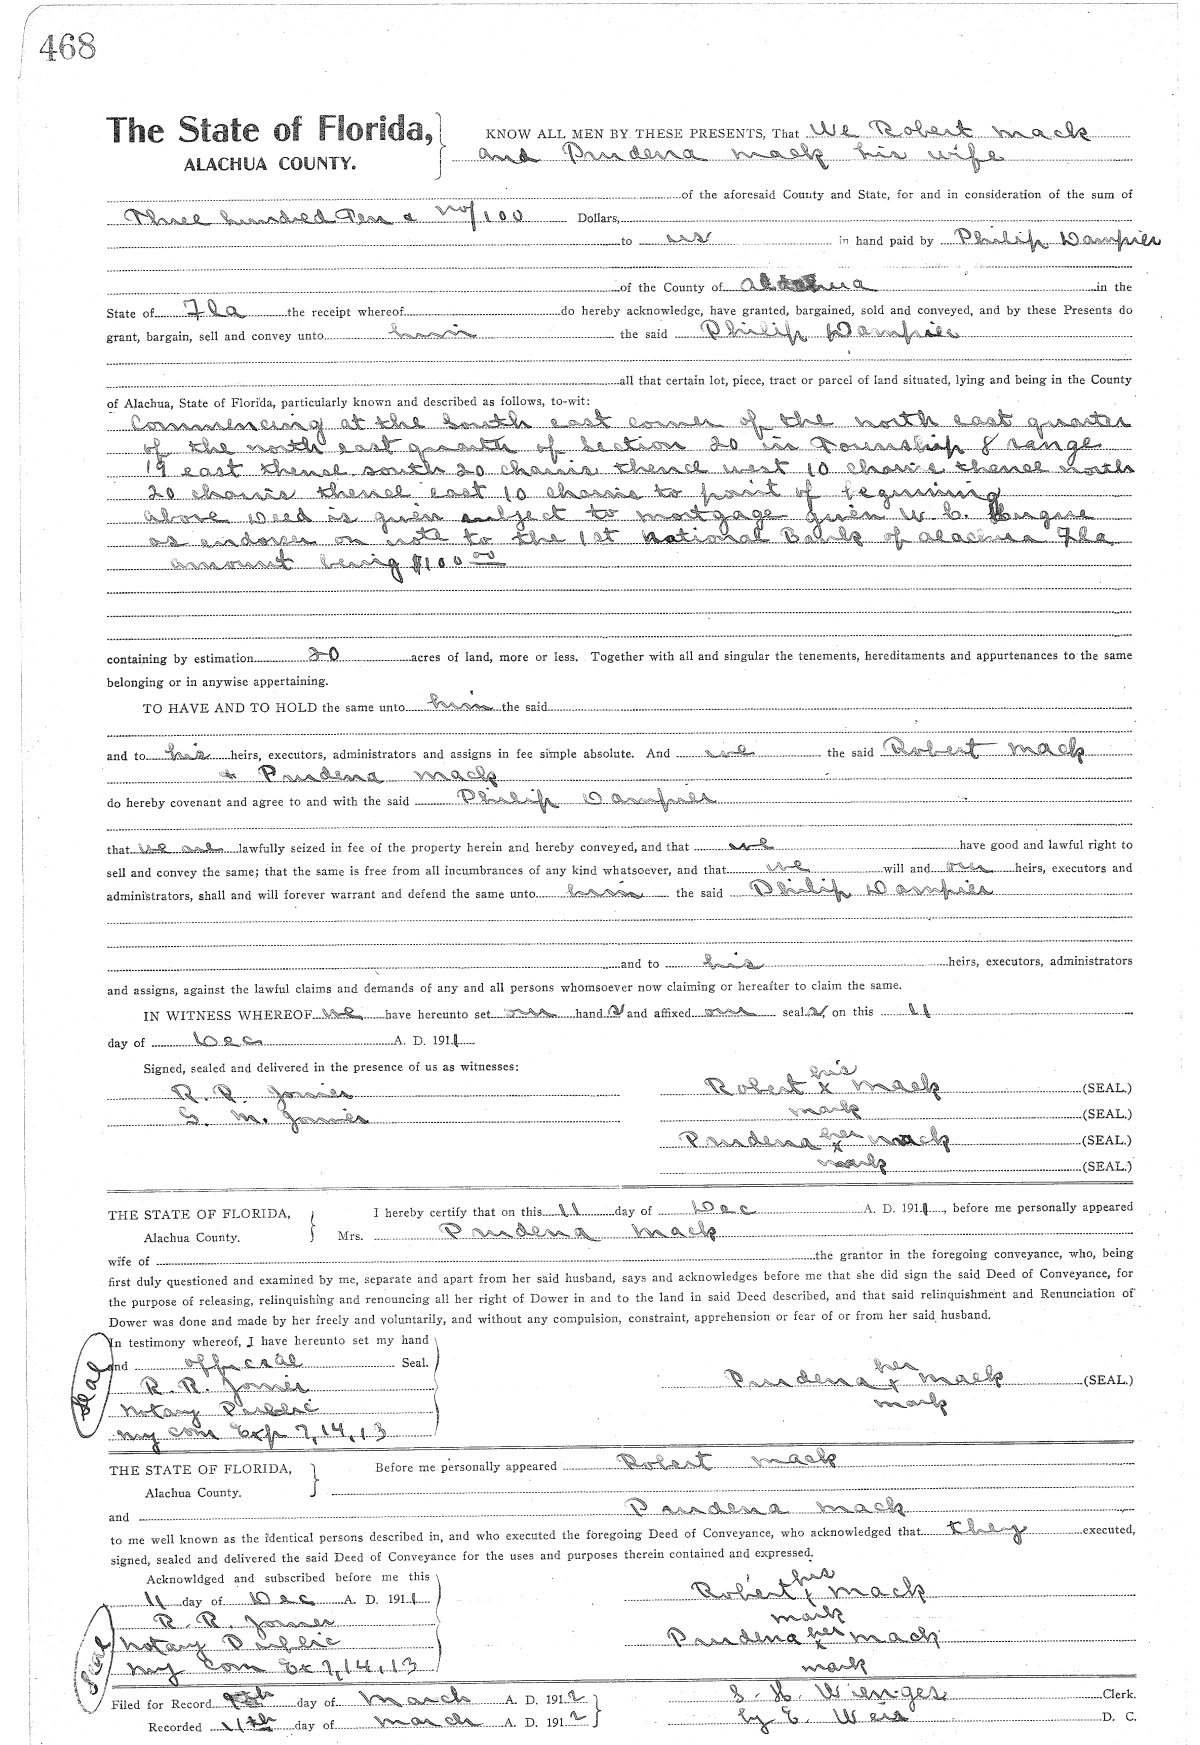 468
The State of Florida, KNOW ALL MEN BY THESE PRESENTS, That We Robert Mack
ALACHUA COUNTY. and Prudena Mack his wife
of the aforesaid County and State, for and in consideration of the sum of
Three hundred Ten & no/100 Dollars,
to us in hand paid by Philip Dampier
of the County of Alachua in the
State of Fla the receipt whereof do hereby acknowledge, have granted, bargained, sold and conveyed, and by these Presents do
grant, bargain, sell and convey unto him the said Philip Dampier
all that certain lot, piece, tract or parcel of land situated, lying and being in the County
of Alachua, State of Florida, particularly known and described as follows, to-wit:
Commencing at the South east corner of the north east quarter
of the north east quarter of Section 20 in Township 8 range
19 east thence south 20 chains thence west 10 chains thence north
20 chains thence east 10 chains to point of beginning
above Deed is given subject to mortgage given W. C.
as endorser on note to the 1st National Bank of Alachua Fla
amount being $100 00
containing by estimation 20 acres of land, more or less. Together with all and singular the tenements, hereditaments and appurtenances to the same
belonging or in anywise appertaining.
TO HAVE AND TO HOLD the same unto him the said
and to his heirs, executors, administrators and assigns in fee simple absolute. And we the said Robert Mack
& Prudena Mack
do hereby covenant and agree to and with the said Philip Dampier
that we are lawfully seized in fee of the property herein and hereby conveyed, and that we have good and lawful right to
sell and convey the same; that the same is free from all incumbrances of any kind whatsoever, and that we will and our heirs, executors and
administrators, shall and will forever warrant and defend the same unto him the said Philip Dampier
and to his heirs, executors, administrators
and assigns, against the lawful claims and demands of any and all persons whomsoever now claiming or hereafter to claim the same.
IN WITNESS WHEREOF we have hereunto set our hand s and affixed our seal s, on this 11
day of Dec A. D. 1911
Signed, sealed and delivered in the presence of us as witnesses:
his
R. R. Joiner Robert x Mack (SEAL.)
S. M. Joiner mark (SEAL.)
Prudena her Mack (SEAL.)
x
mark (SEAL.)
THE STATE OF FLORIDA, I hereby certify that on this 11 day of Dec A. D. 1911, before me personally appeared
Alachua County. Mrs. Prudena Mack
wife of the grantor in the foregoing conveyance, who, being
first duly questioned and examined by me, separate and apart from her said husband, says and acknowledges before me that she did sign the said Deed of Conveyance, for
the purpose of releasing, relinquishing and renouncing all her right of Dower in and to the land in said Deed described, and that said relinquishment and Renunciation of
Dower was done and made by her freely and voluntarily, and without any compulsion, constraint, apprehension or fear of or from her said husband.
In testimony whereof, I have hereunto set my hand
and official Seal. her
Seal
R. R. Joiner Prudena x Mack (SEAL.)
Notary Public mark
my com Exp 7,14,13
THE STATE OF FLORIDA, Before me personally appeared Robert Mack
Alachua County.
and Prudena Mack
to me well known as the identical persons described in, and who executed the foregoing Deed of Conveyance, who acknowledged that they executed,
signed, sealed and delivered the said Deed of Conveyance for the uses and purposes therein contained and expressed.
Acknowldged and subscribed before me this his
11 day of Dec A. D. 1911 Robert x Mack
R. R. Joiner mark
Seal
Notary Public Prudena her x Mack
my com Ex 7,14,13 mark
Filed for Record day of March A. D. 1912 S. H. Wienges Clerk.
Recorded 11th day of March A. D. 1912 by E. Weis D. C.